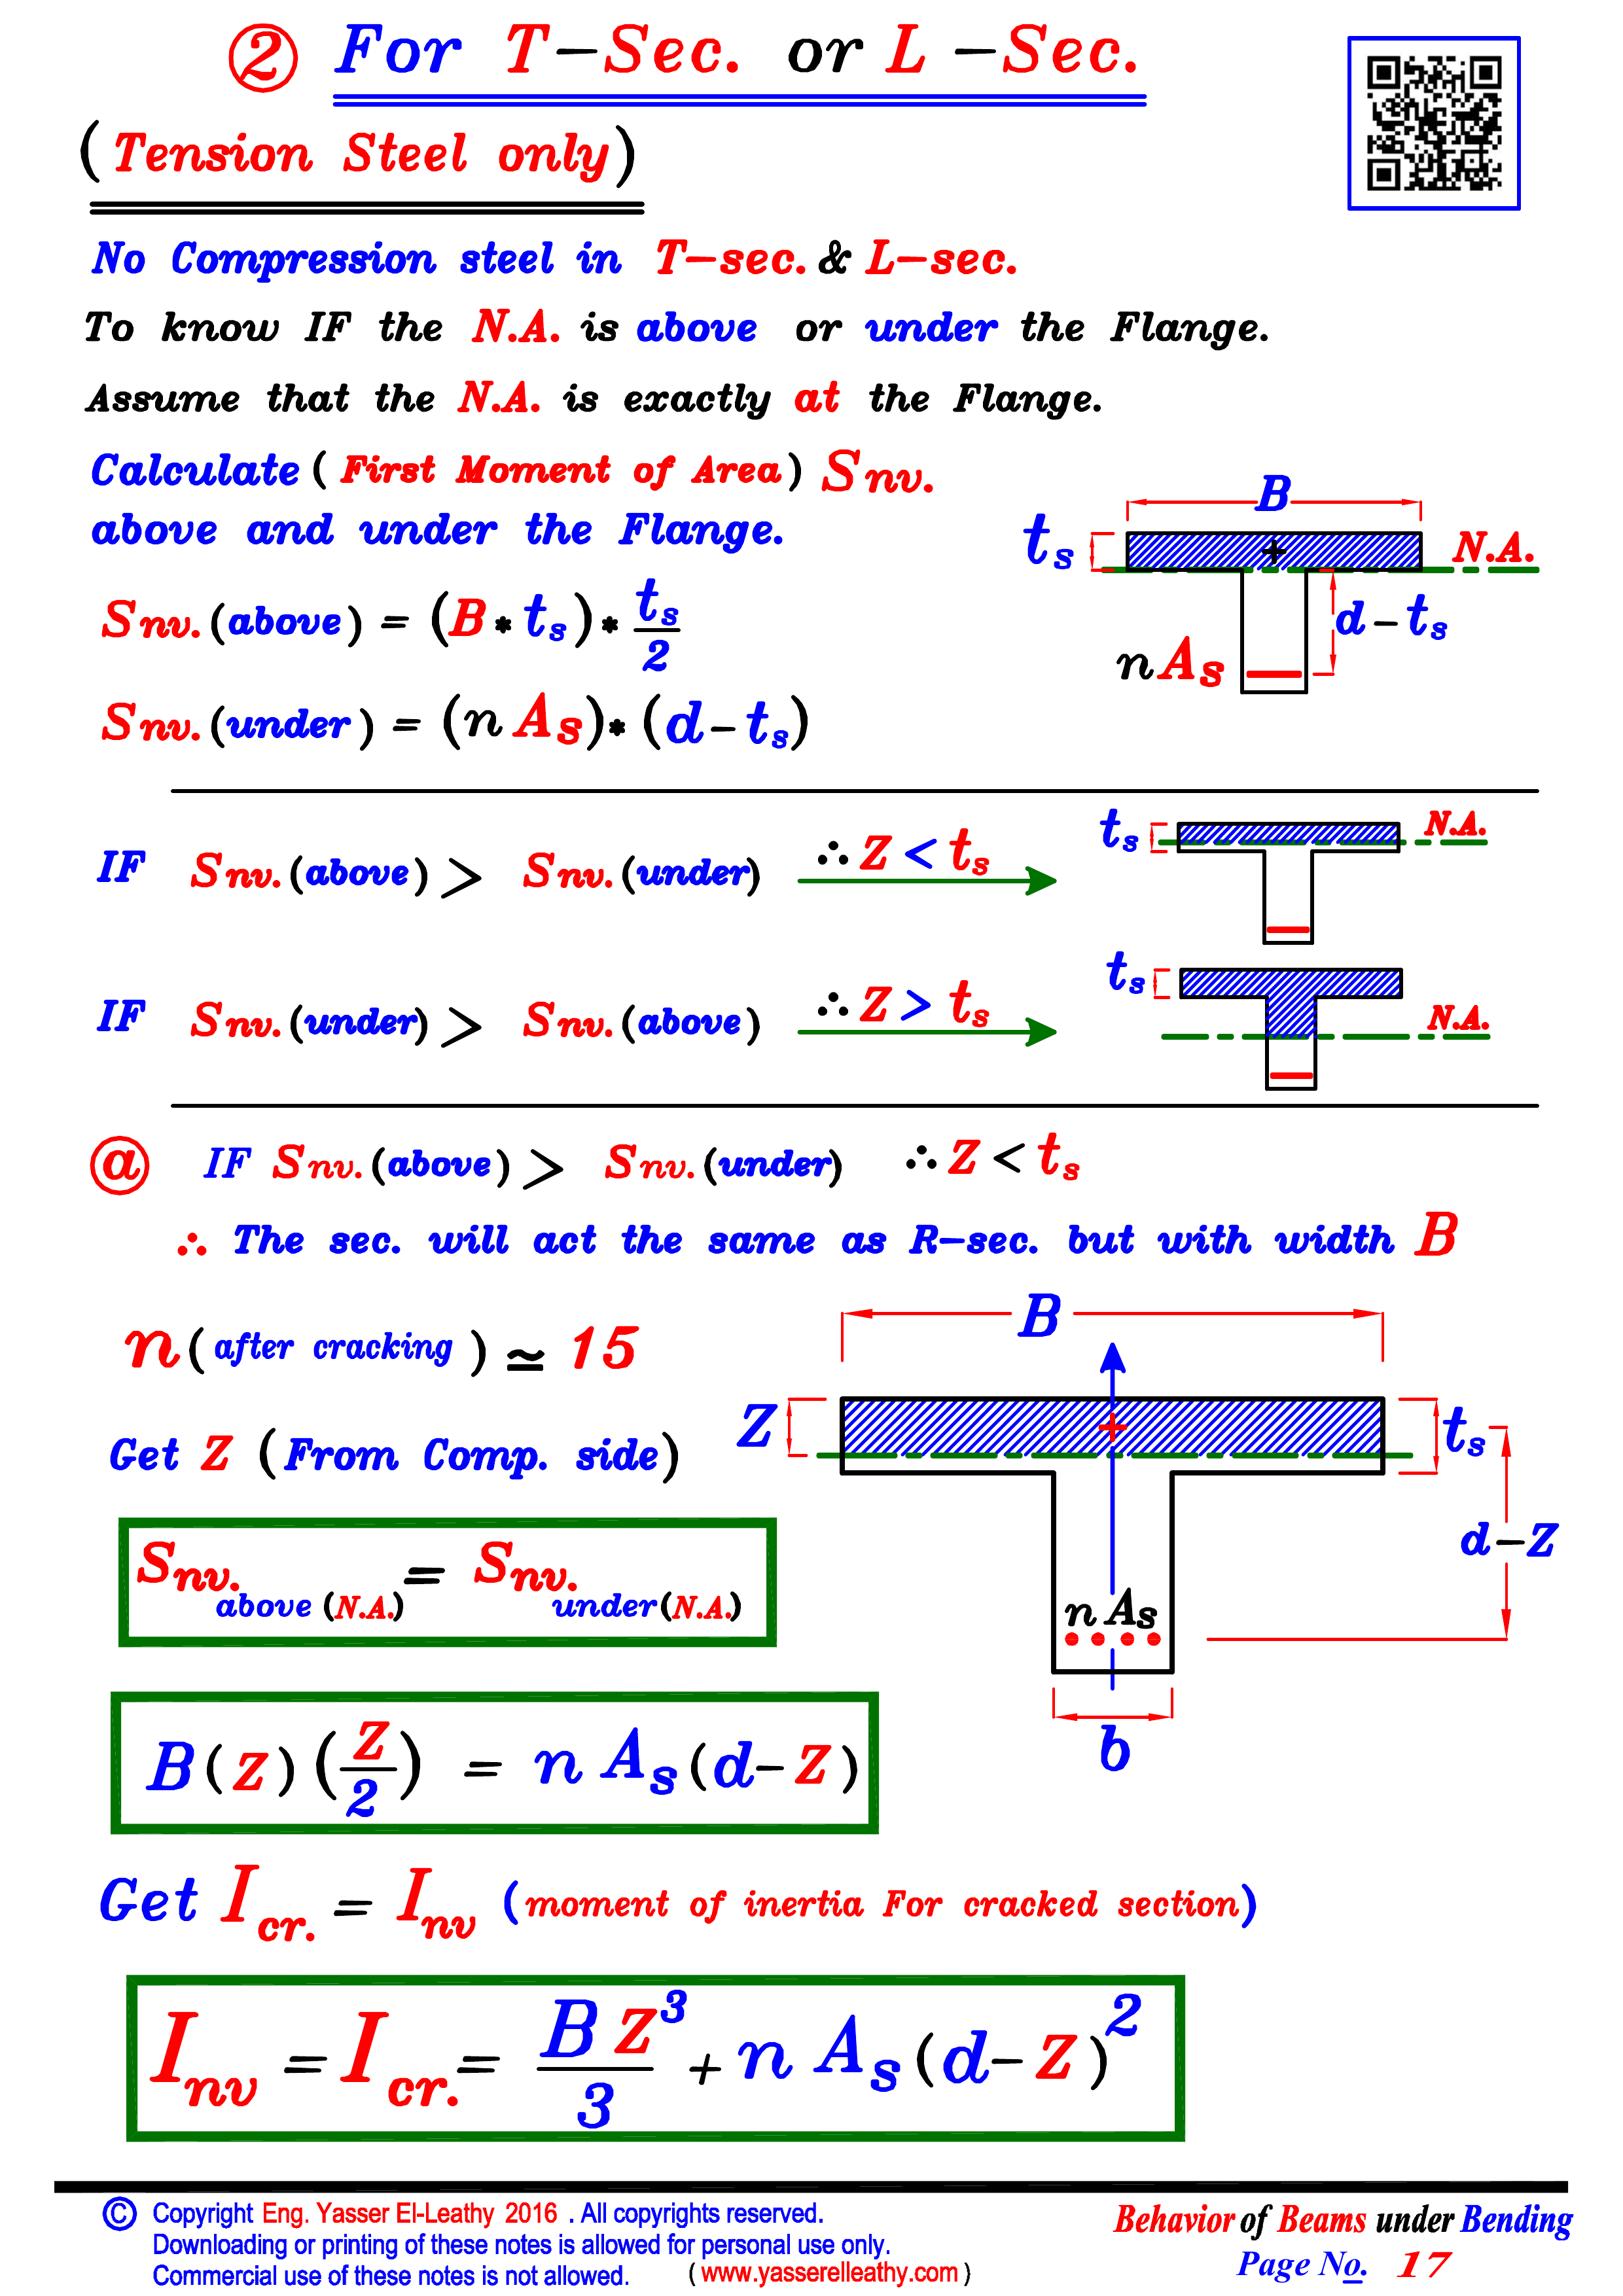 ② For T-Sec. or L-Sec.
(Tension Steel only)
No Compression steel in T-sec. & L-sec.
To know IF the N.A. is above or under the Flange.
Assume that the N.A. is exactly at the Flange.
Calculate (First Moment of Area) Snv.
above and under the Flange.
B
ts
N.A.
Snv.(above) = (B * ts) * ts/2
d-ts
nAs
Snv.(under) = (n As) * (d - ts)
IF Snv.(above) > Snv.(under) ∴ Z < ts
ts
N.A.
IF Snv.(under) > Snv.(above) ∴ Z > ts
ts
N.A.
ⓐ IF Snv.(above) > Snv.(under) ∴ Z < ts
∴ The sec. will act the same as R-sec. but with width B
n (after cracking) ≃ 15
B
Get Z (From Comp. side)
Z
ts
Snv. above (N.A.) = Snv. under (N.A.)
d-Z
n As
B (Z) (Z/2) = n As (d-Z)
b
Get Icr. = Inv (moment of inertia For cracked section)
Inv = Icr. = B Z³/3 + n As (d-Z)²
© Copyright Eng. Yasser El-Leathy 2016 . All copyrights reserved.
Downloading or printing of these notes is allowed for personal use only.
Commercial use of these notes is not allowed. ( www.yasserelleathy.com )
Behavior of Beams under Bending
Page No. 17